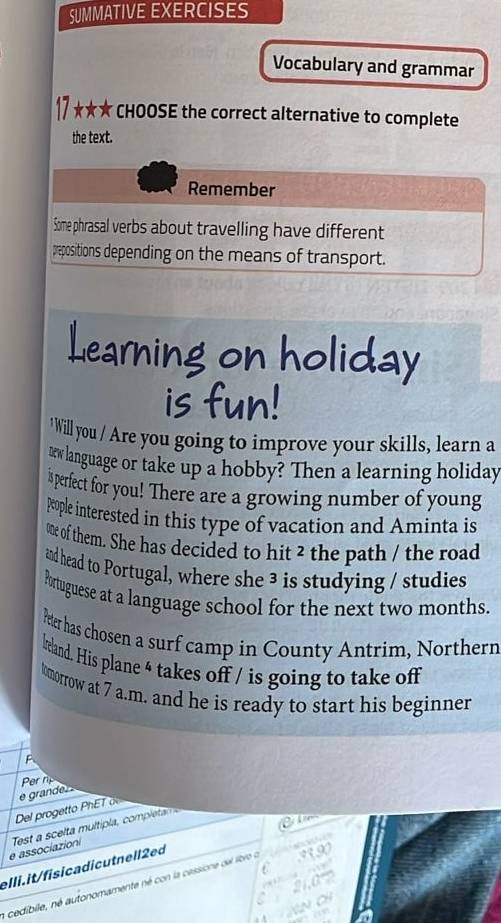 SUMMATIVE EXERCISES
Vocabulary and grammar
17 ★★★ CHOOSE the correct alternative to complete
the text.
Remember
Some phrasal verbs about travelling have different
prepositions depending on the means of transport.
Learning on holiday
is fun!
¹ Will you / Are you going to improve your skills, learn a
new language or take up a hobby? Then a learning holiday
is perfect for you! There are a growing number of young
people interested in this type of vacation and Aminta is
one of them. She has decided to hit ² the path / the road
and head to Portugal, where she ³ is studying / studies
Portuguese at a language school for the next two months.
Peter has chosen a surf camp in County Antrim, Northern
Ireland. His plane ⁴ takes off / is going to take off
tomorrow at 7 a.m. and he is ready to start his beginner
Per
e grande
Del progetto PhET
Test a scelta multipla,
e associazioni
elli.it/fisicadicutnell2ed
cedibile, né autonomamente né con la cessione del libro